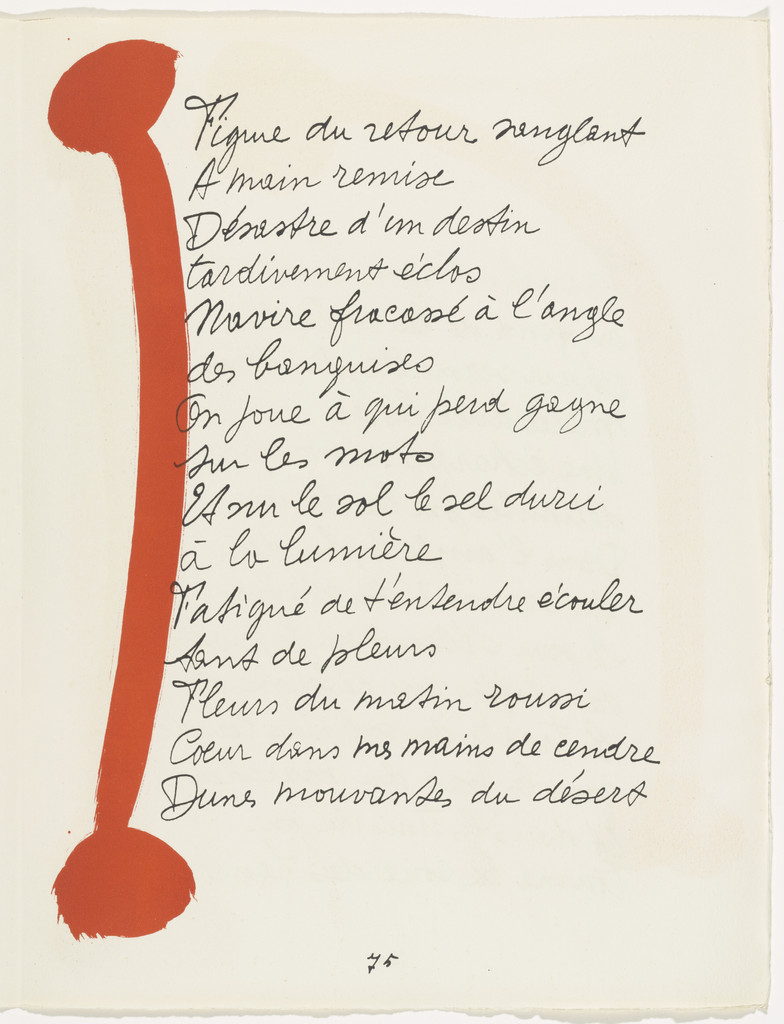 Figure du retour sanglant
A main remise
Désastre d'un destin
tardivement éclos
Navire fracassé à l'angle
des banquises
On joue à qui perd gagne
sur les mots
Et sur le sol le sel durci
à la lumière
Fatigué de t'entendre écouler
tant de pleurs
Fleurs du matin roussi
Coeur dans mes mains de cendre
Dunes mouvantes du désert
75